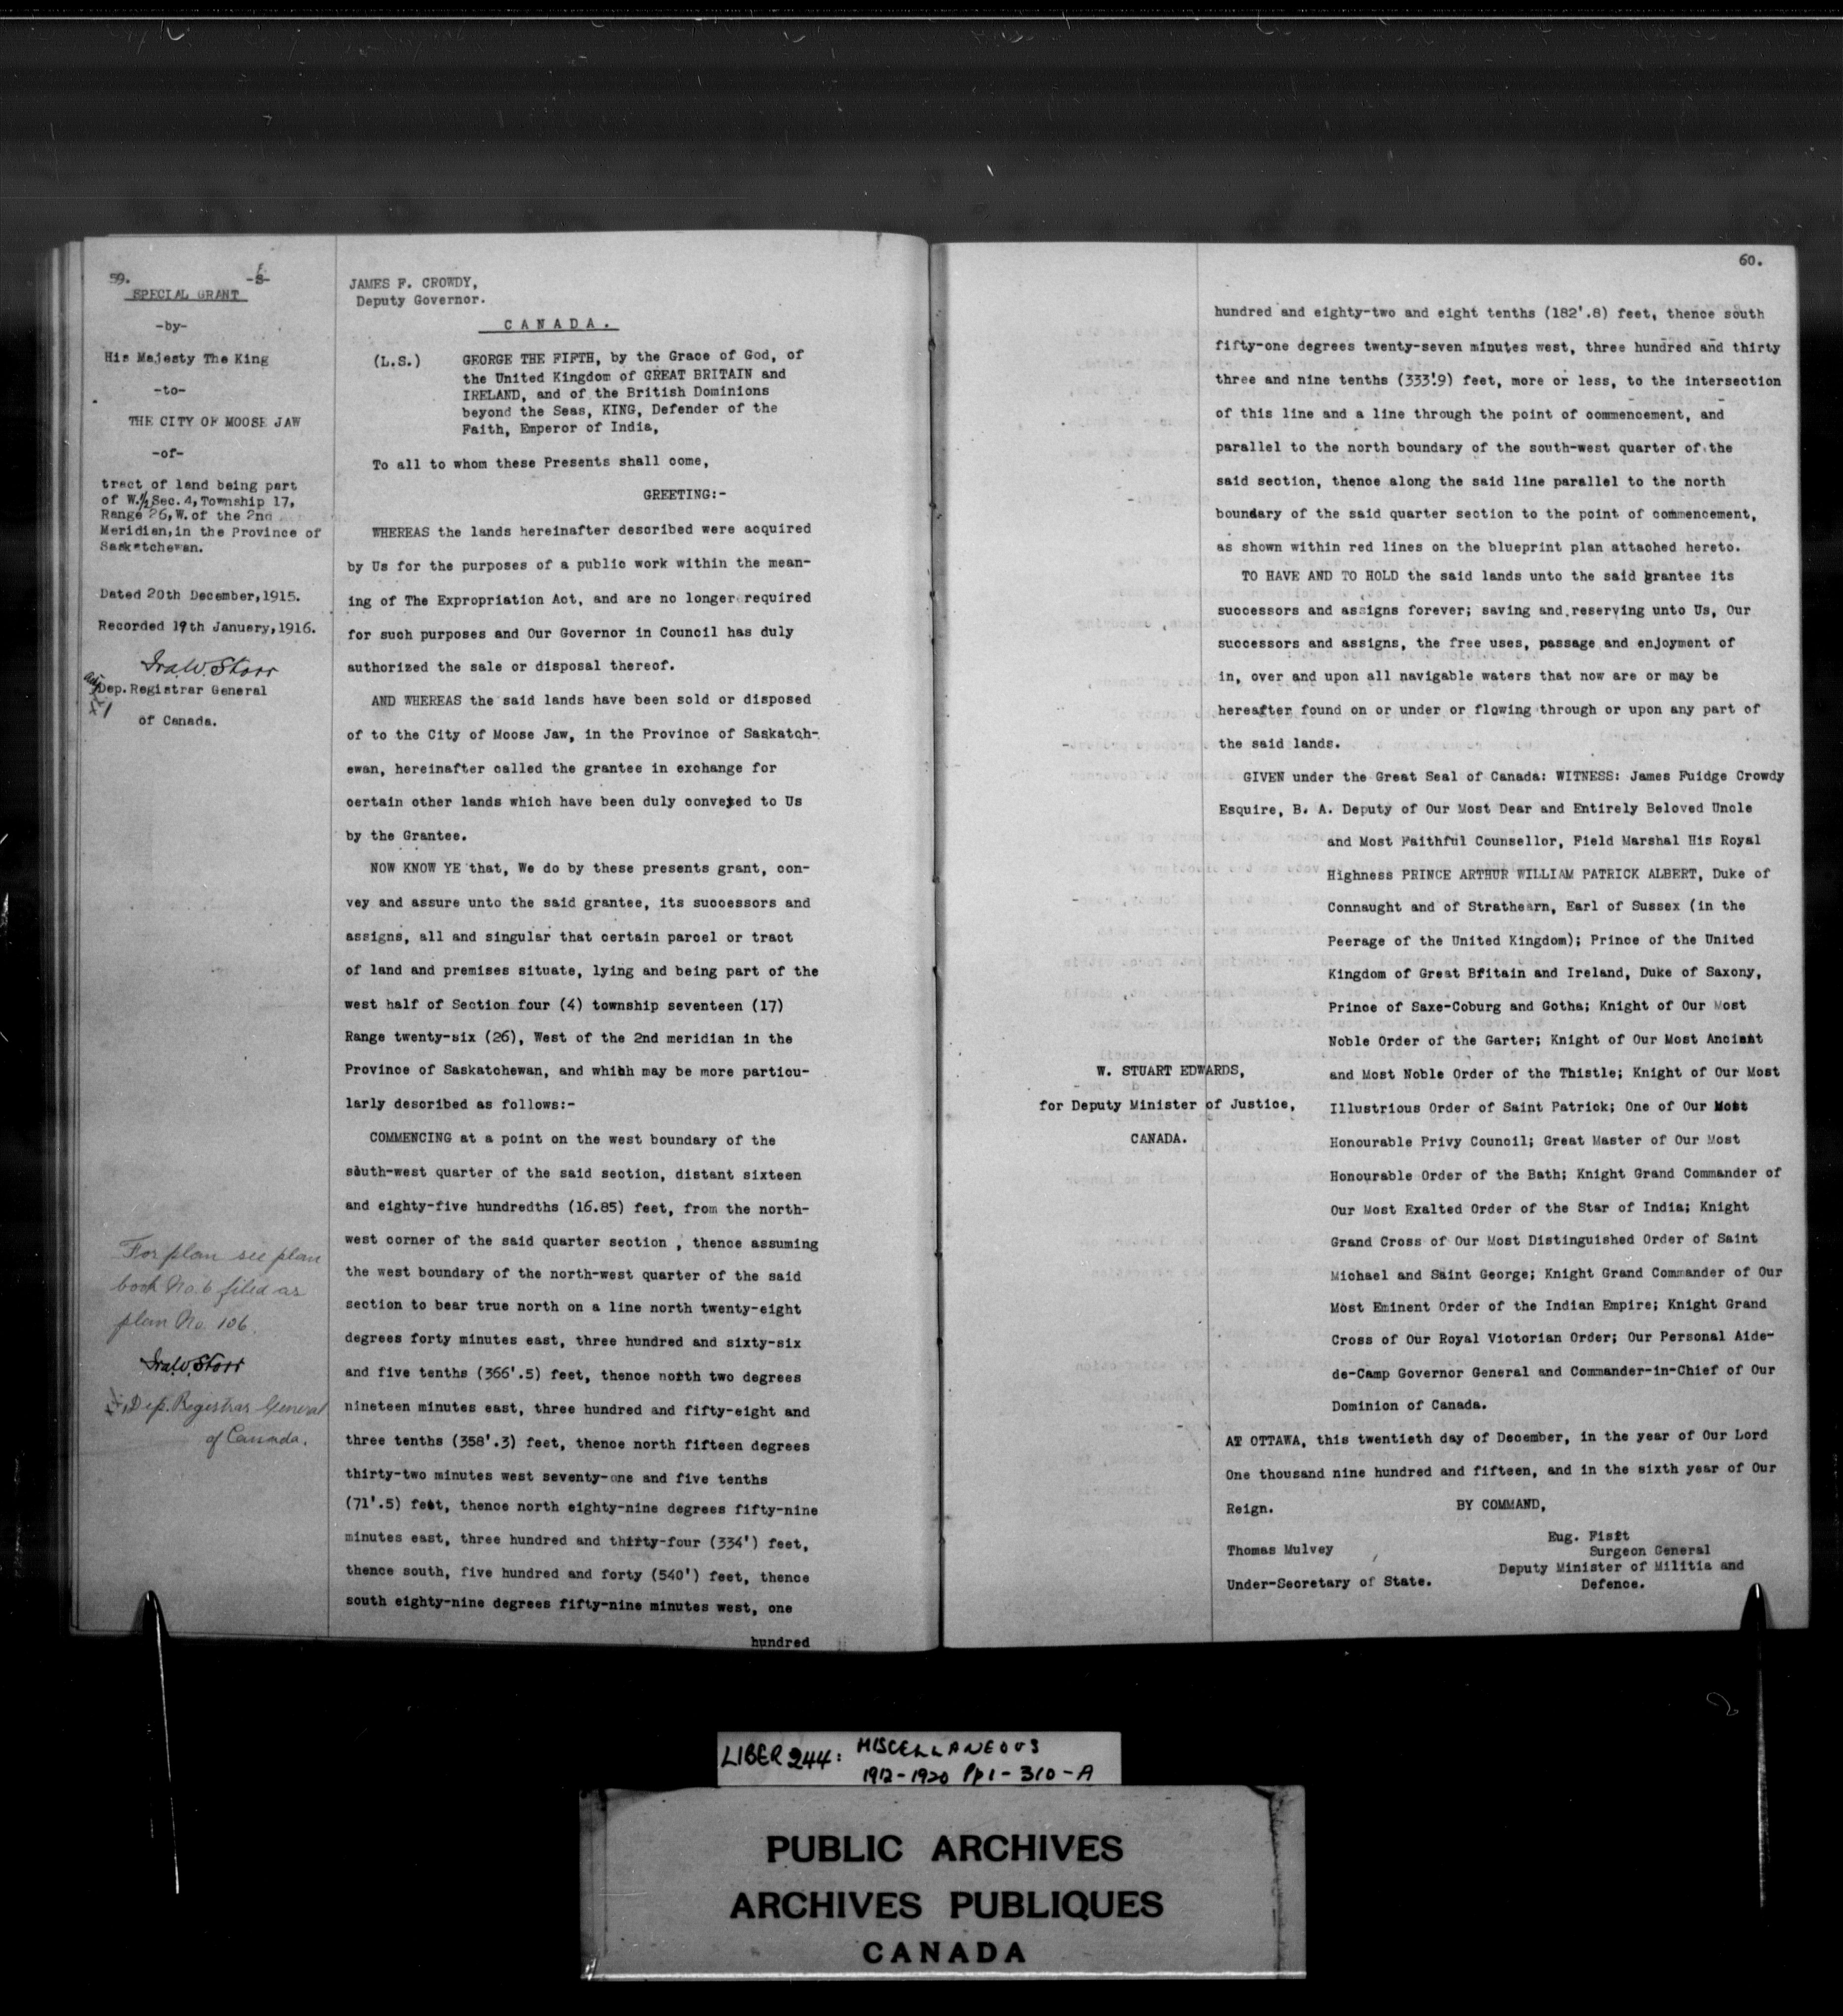 59.
-8-
SPECIAL GRANT
-by-
His Majesty The King
-to-
THE CITY OF MOOSE JAW
-of-
tract of land being part
of W.½ Sec. 4, Township 17,
Range 26, W. of the 2nd
Meridian, in the Province of
Saskatchewan.
Dated 20th December, 1915.
Recorded 19th January, 1916.
Ira W. Storr
Dep. Registrar General
of Canada.
For plan see plan
book No. 6 filed as
plan No. 106.
Ira W. Storr
Dep. Registrar General
of Canada.
JAMES F. CROWDY,
Deputy Governor.
CANADA.
(L.S.) GEORGE THE FIFTH, by the Grace of God, of
the United Kingdom of GREAT BRITAIN and
IRELAND, and of the British Dominions
beyond the Seas, KING, Defender of the
Faith, Emperor of India,
To all to whom these Presents shall come,
GREETING:-
WHEREAS the lands hereinafter described were acquired
by Us for the purposes of a public work within the mean-
ing of The Expropriation Act, and are no longer required
for such purposes and Our Governor in Council has duly
authorized the sale or disposal thereof.
AND WHEREAS the said lands have been sold or disposed
of to the City of Moose Jaw, in the Province of Saskatch-
ewan, hereinafter called the grantee in exchange for
certain other lands which have been duly conveyed to Us
by the Grantee.
NOW KNOW YE that, We do by these presents grant, con-
vey and assure unto the said grantee, its successors and
assigns, all and singular that certain parcel or tract
of land and premises situate, lying and being part of the
west half of Section four (4) township seventeen (17)
Range twenty-six (26), West of the 2nd meridian in the
Province of Saskatchewan, and which may be more particu-
larly described as follows:-
COMMENCING at a point on the west boundary of the
south-west quarter of the said section, distant sixteen
and eighty-five hundredths (16.85) feet, from the north-
west corner of the said quarter section , thence assuming
the west boundary of the north-west quarter of the said
section to bear true north on a line north twenty-eight
degrees forty minutes east, three hundred and sixty-six
and five tenths (366'.5) feet, thence north two degrees
nineteen minutes east, three hundred and fifty-eight and
three tenths (358'.3) feet, thence north fifteen degrees
thirty-two minutes west seventy-one and five tenths
(71'.5) feet, thence north eighty-nine degrees fifty-nine
minutes east, three hundred and thirty-four (334') feet,
thence south, five hundred and forty (540') feet, thence
south eighty-nine degrees fifty-nine minutes west, one
hundred
60.
hundred and eighty-two and eight tenths (182'.8) feet, thence south
fifty-one degrees twenty-seven minutes west, three hundred and thirty
three and nine tenths (333'.9) feet, more or less, to the intersection
of this line and a line through the point of commencement, and
parallel to the north boundary of the south-west quarter of the
said section, thence along the said line parallel to the north
boundary of the said quarter section to the point of commencement,
as shown within red lines on the blueprint plan attached hereto.
TO HAVE AND TO HOLD the said lands unto the said grantee its
successors and assigns forever; saving and reserving unto Us, Our
successors and assigns, the free uses, passage and enjoyment of
in, over and upon all navigable waters that now are or may be
hereafter found on or under or flowing through or upon any part of
the said lands.
GIVEN under the Great Seal of Canada: WITNESS: James Fuidge Crowdy
Esquire, B. A. Deputy of Our Most Dear and Entirely Beloved Uncle
and Most Faithful Counsellor, Field Marshal His Royal
Highness PRINCE ARTHUR WILLIAM PATRICK ALBERT, Duke of
Connaught and of Strathearn, Earl of Sussex (in the
Peerage of the United Kingdom); Prince of the United
Kingdom of Great Britain and Ireland, Duke of Saxony,
Prince of Saxe-Coburg and Gotha; Knight of Our Most
Noble Order of the Garter; Knight of Our Most Ancient
and Most Noble Order of the Thistle; Knight of Our Most
Illustrious Order of Saint Patrick; One of Our Most
Honourable Privy Council; Great Master of Our Most
Honourable Order of the Bath; Knight Grand Commander of
Our Most Exalted Order of the Star of India; Knight
Grand Cross of Our Most Distinguished Order of Saint
Michael and Saint George; Knight Grand Commander of Our
Most Eminent Order of the Indian Empire; Knight Grand
Cross of Our Royal Victorian Order; Our Personal Aide-
de-Camp Governor General and Commander-in-Chief of Our
Dominion of Canada.
W. STUART EDWARDS,
for Deputy Minister of Justice,
CANADA.
AT OTTAWA, this twentieth day of December, in the year of Our Lord
One thousand nine hundred and fifteen, and in the sixth year of Our
Reign.
BY COMMAND,
Thomas Mulvey
Under-Secretary of State.
Eug. Fiset
Surgeon General
Deputy Minister of Militia and
Defence.
LIBER 244: MISCELLANEOUS
1912-1920 Pp 1-310-A
PUBLIC ARCHIVES
ARCHIVES PUBLIQUES
CANADA